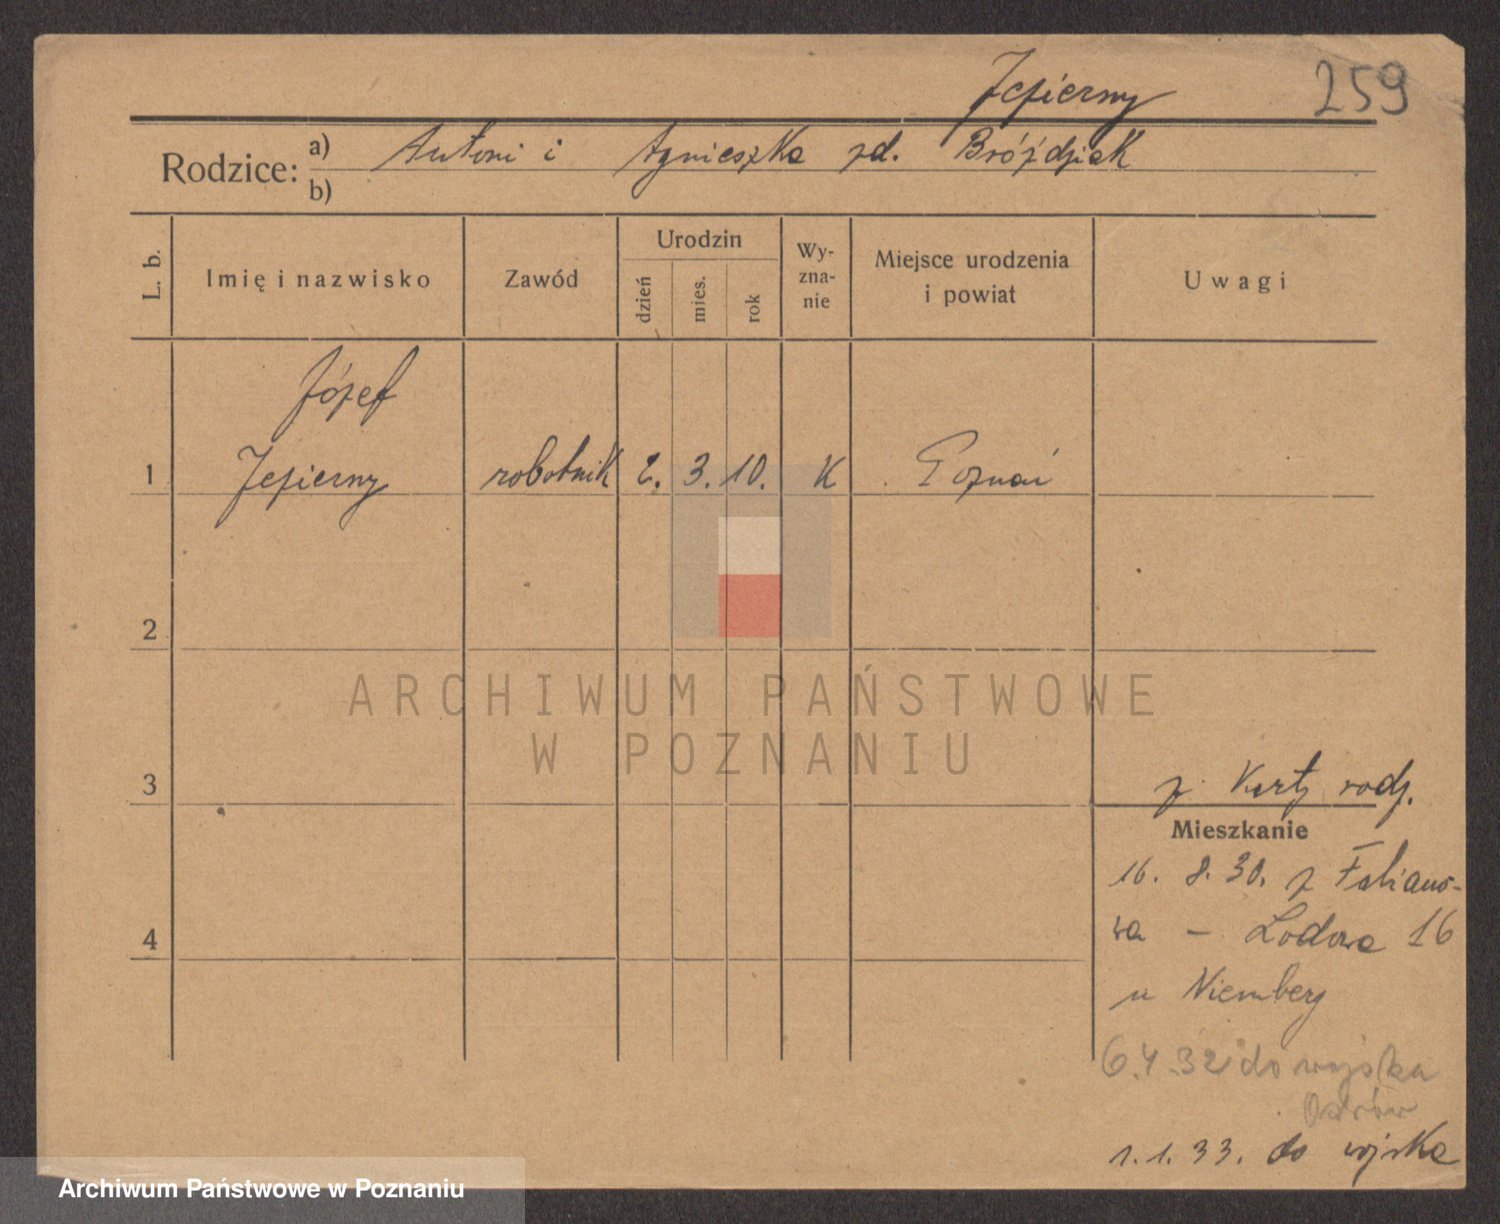 Jezierny 259
Rodzice: a) Antoni i Agnieszka zd. Bróździak
b)
L. b. Imię i nazwisko Zawód Urodzin dzień mies. rok Wyznanie Miejsce urodzenia i powiat Uwagi
Józef
1 Jezierny robotnik 2. 3. 10. K Poznań
2
3
z Karty rodz.
Mieszkanie
16. 8. 30. z Fabiano-
wa - Lodowa 16
4
u Niemberg
6.4.32 do wojska
Ostrów
1. 1. 33. do wojska
ARCHIWUM PAŃSTWOWE
W POZNANIU
Archiwum Państwowe w Poznaniu